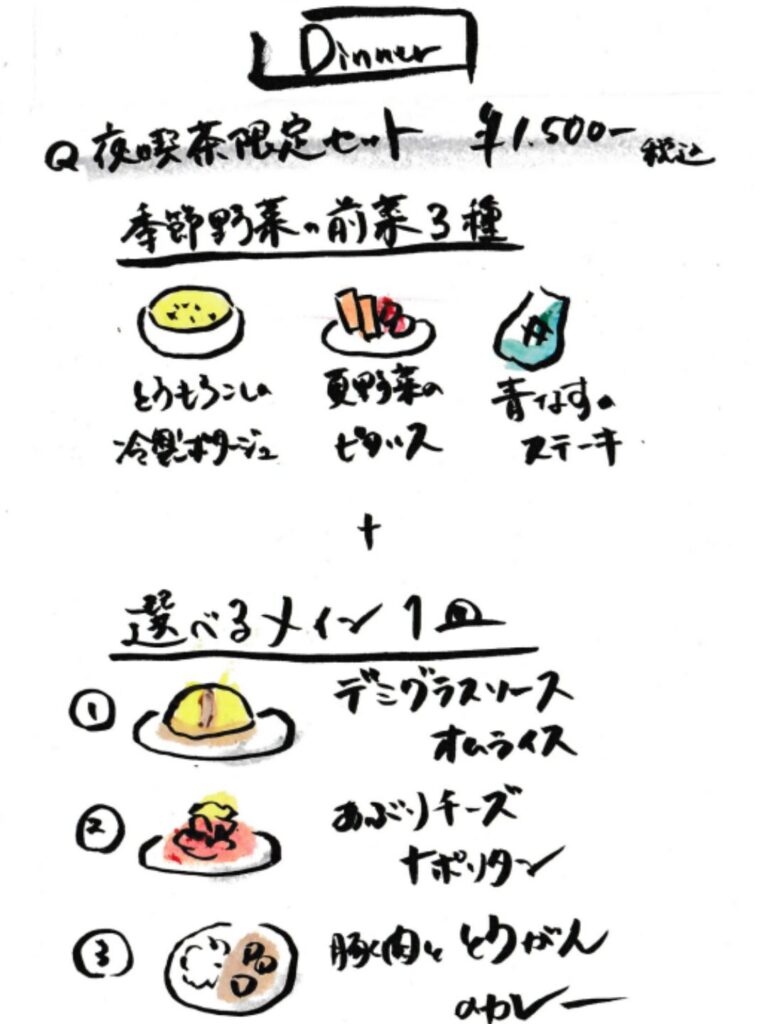 Dinner
夜喫茶限定セット ¥1.500- 税込
季節野菜の前菜3種
とうもろこしの 夏野菜の 青なすの
冷製ポタージュ ピクルス ステーキ
+
選べるメイン1皿
① デミグラスソース
オムライス
② あぶりチーズ
ナポリタン
③ 豚肉と とうがん
のカレー